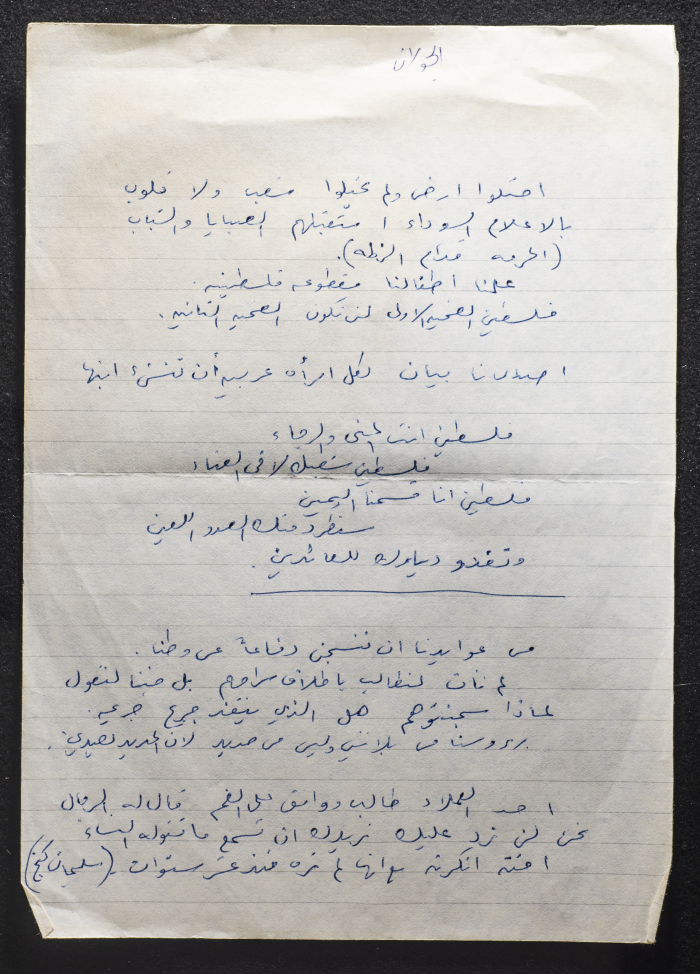 الجولان
احتلوا ارض ولم يحتلوا شعب ولا قلوب
بالاعلام السوداء استقبلهم الصبايا والشباب
(الحرمه قدام الزلمه).
علمنا اطفالنا مقطوعه فلسطينيه.
فلسطين الضحيه الاولى لن تكون الضحيه الثانيه.
اصدرنا بيان لكل امرأه عربيه أن تنشئ ابنها
فلسطين انت المنى والرجاء
فلسطين شعبك لاقى العناء
فلسطين انا قسمنا اليمين
سنطرد منك العدو اللعين
وتغدو ديارك للعائدين.
من عوايدنا ان ننسجن دفاعاً عن وطنا.
لم نأت لنطالب باطلاق سراحهم بل جئنا لنقول
لماذا سجنتوهم هل الذي ينقذ جريح جريمه.
رؤوسنا من بلاتين وليس من حديد لان الحديد بصدي.
احد العملاء طالب دوافق على الضم قال له الرجال
نحن لن نرد عليك نريدك ان تسمع ما تقوله النساء
اخته انكرته مع انها لم تره منذ عشر سنوات. (سليمان كنج)